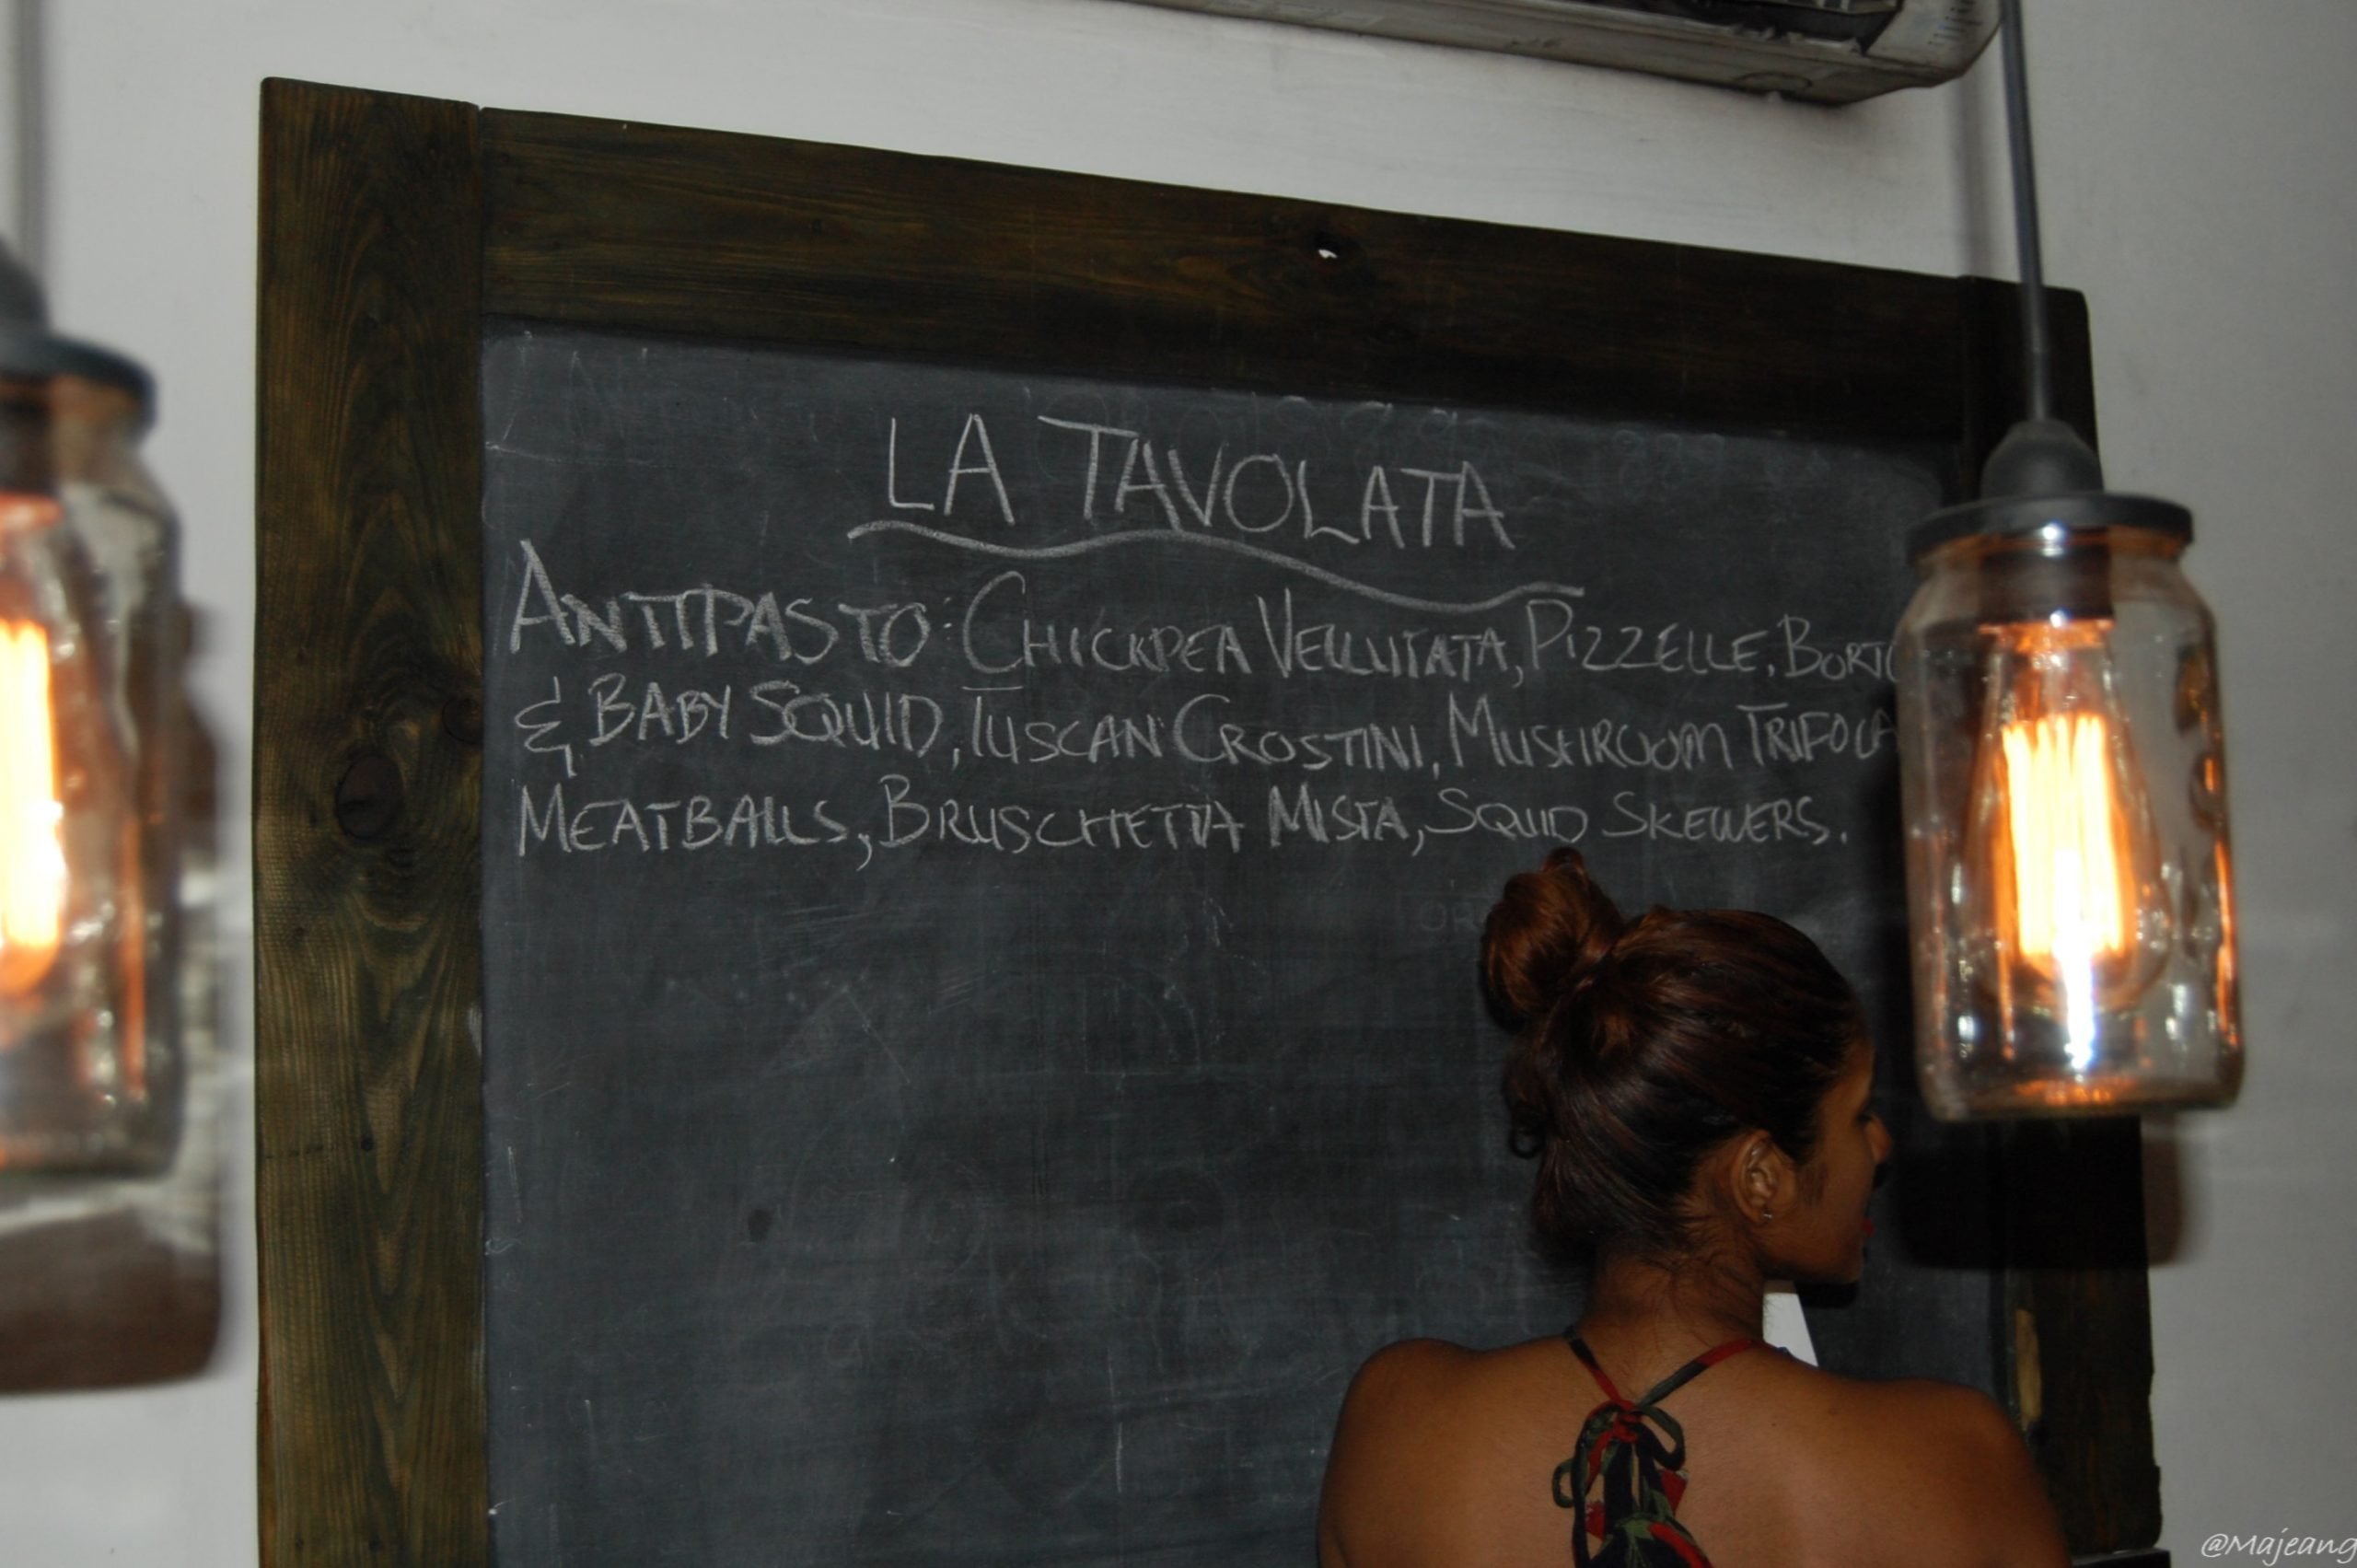 LA TAVOLATA
ANTIPASTO: CHICKPEA VELLUTATA, PIZZELLE, 
& BABY SQUID, TUSCAN CROSTINI, MUSHROOM
MEATBALLS, BRUSCHETTA MISTA, SQUID SKEWERS.
@Majeang